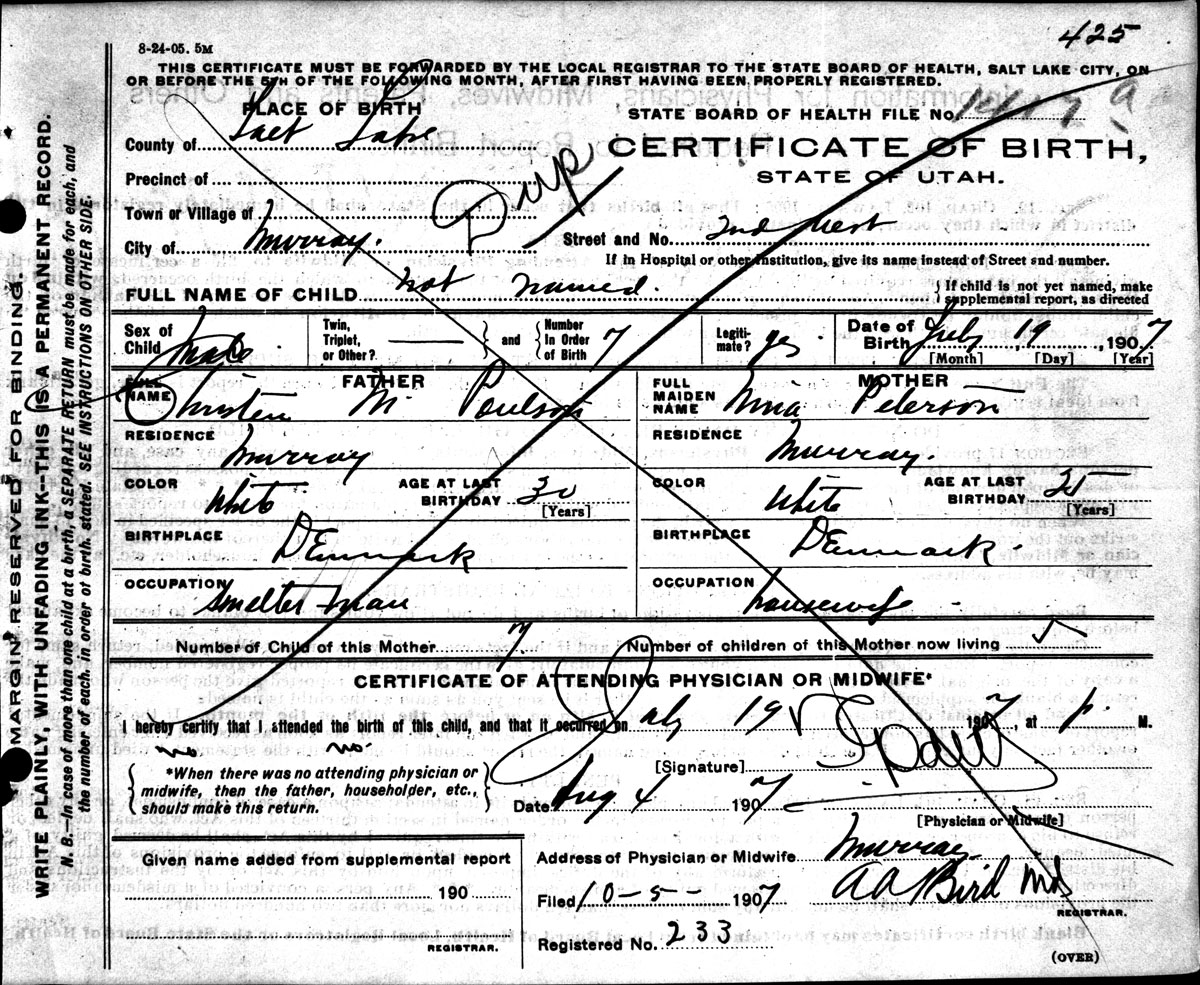 425
8-24-05. 5M
THIS CERTIFICATE MUST BE FORWARDED BY THE LOCAL REGISTRAR TO THE STATE BOARD OF HEALTH, SALT LAKE CITY, ON
OR BEFORE THE 5TH OF THE FOLLOWING MONTH, AFTER FIRST HAVING BEEN PROPERLY REGISTERED.
PLACE OF BIRTH
STATE BOARD OF HEALTH FILE No.
County of Salt Lake
CERTIFICATE OF BIRTH,
Precinct of
Dup
STATE OF UTAH.
Town or Village of
City of Murray.
Street and No. 2nd West
If in Hospital or other Institution, give its name instead of Street and number.
FULL NAME OF CHILD not named.
If child is not yet named, make supplemental report, as directed
Sex of Child Male
Twin, Triplet, or Other?
and
Number In Order of Birth 7
Legiti-mate? yes
Date of Birth July 19, 1907
[Month] [Day] [Year]
FATHER
MOTHER
FULL NAME Christen M Poulson
FULL MAIDEN NAME Nina Peterson
RESIDENCE Murray
RESIDENCE Murray
COLOR White AGE AT LAST BIRTHDAY 30 [Years]
COLOR White AGE AT LAST BIRTHDAY [Years]
BIRTHPLACE Denmark
BIRTHPLACE Denmark
OCCUPATION Smelter Man
OCCUPATION housewife
Number of Child of this Mother 7 Number of children of this Mother now living 5
CERTIFICATE OF ATTENDING PHYSICIAN OR MIDWIFE*
I hereby certify that I attended the birth of this child, and that it occurred on July 19 1907, at p. M.
no
*When there was no attending physician or midwife, then the father, householder, etc., should make this return.
[Signature]
Date Aug 4 1907
[Physician or Midwife]
Given name added from supplemental report
Address of Physician or Midwife Murray
190
Filed 10-5- 1907 AA Bird MD
REGISTRAR.
REGISTRAR.
Registered No. 233
(OVER)
MARGIN RESERVED FOR BINDING.
WRITE PLAINLY, WITH UNFADING INK—THIS IS A PERMANENT RECORD.
N. B.—In case of more than one child at a birth, a SEPARATE RETURN must be made for each, and
the number of each, in order of birth, stated. SEE INSTRUCTIONS ON OTHER SIDE.